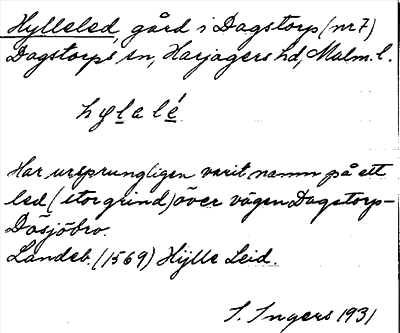 Hylleled, gård i Dagstorp (nr 7)
Dagstorps sn, Harjagers hd, Malm. l.
hylalé
Har ursprungligen varit namn på ett
led (stor grind) över vägen Dagstorp-
Dösjöbro.
Landeb. (1569) Hÿlle Leid.
S. Ingers 1931